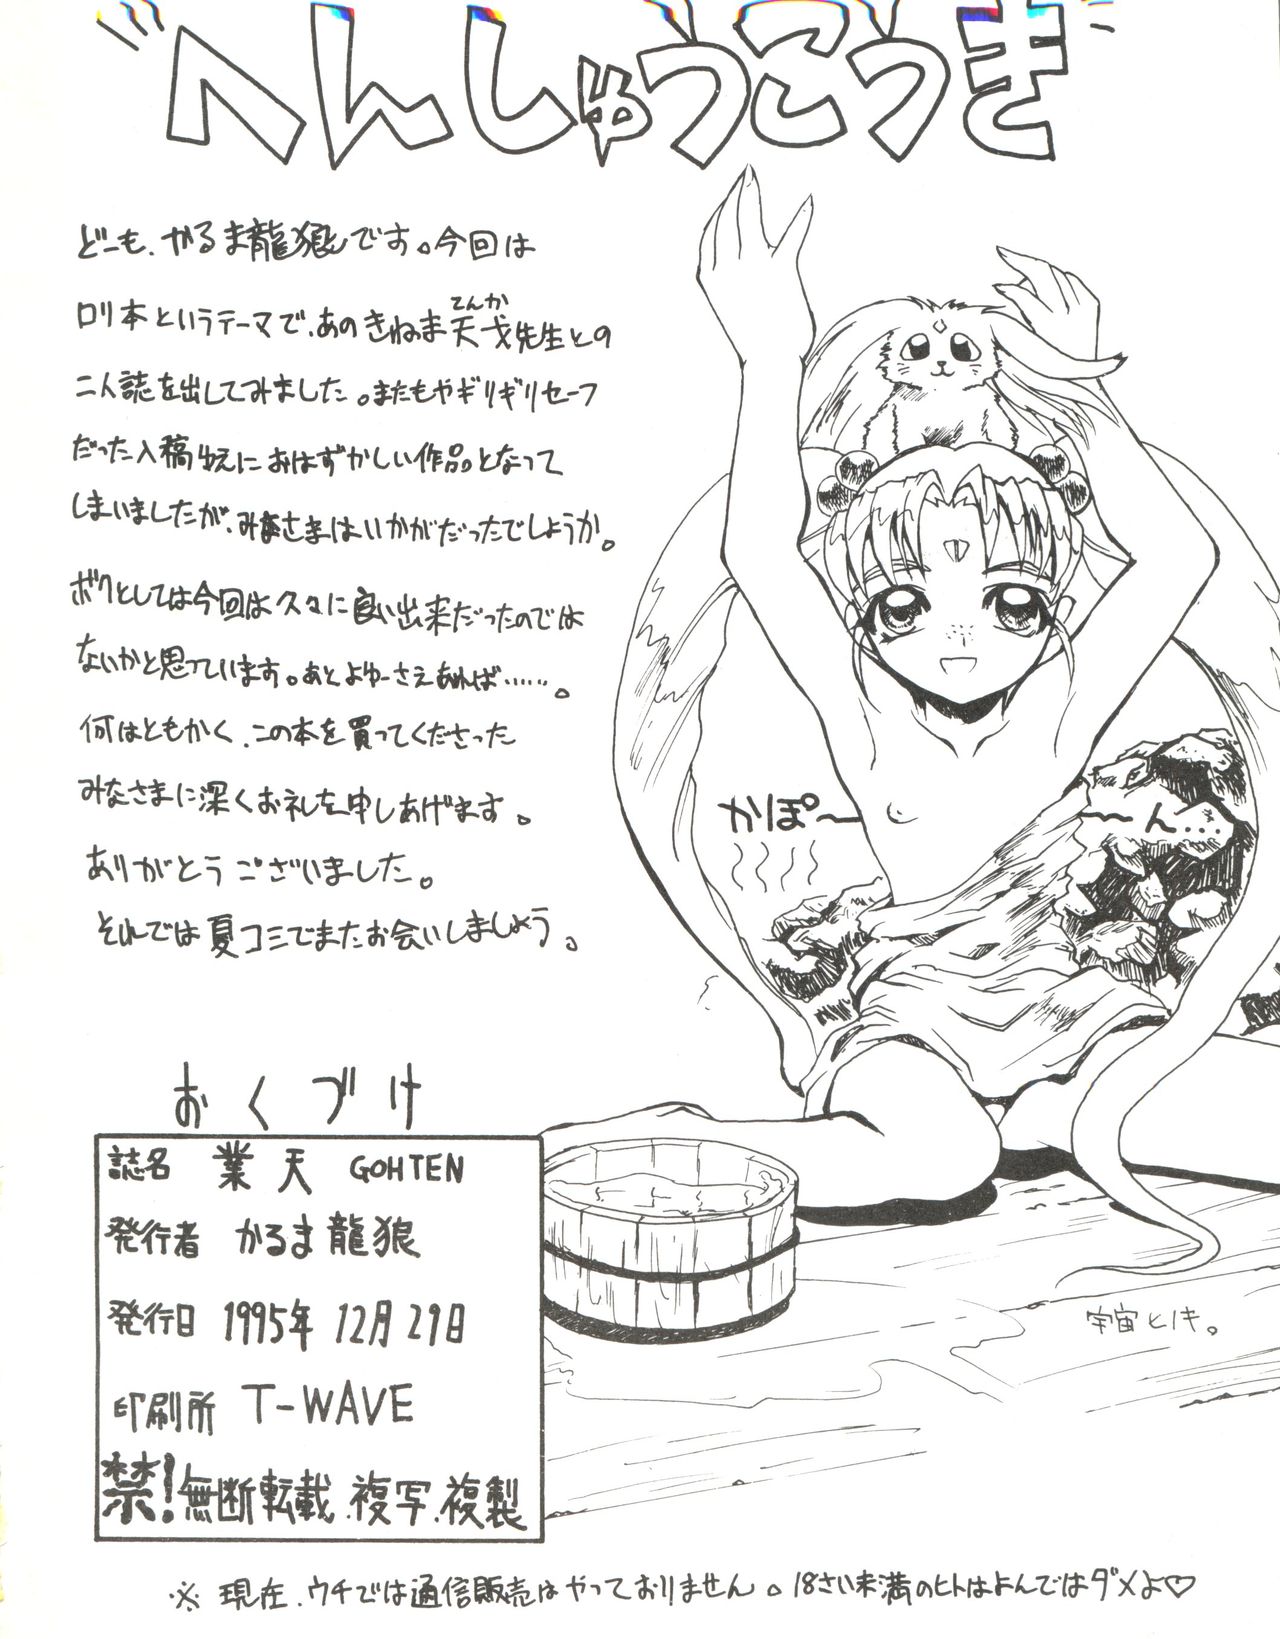 "へんしゅうこうき"
どーも、かるま龍狼です。今回は
ロリ本というテーマで、あのきねま天戈先生との
てんか
二人誌を出してみました。またもやギリギリセーフ
だった入稿ゆえにおはずかしい作品となって
しまいましたが、みなさまはいかがだったでしょうか。
ボクとしては今回は久々に良い出来だったのでは
ないかと思っています。あとよゆーさえあれば……。
何はともかく、この本を買ってくださった
みなさまに深くお礼を申しあげます。
ありがとうございました。
それでは夏コミでまたお会いしましょう。
かぽ〜
〜ん…
宇宙ヒノキ。
おくづけ
誌名 業天 GOHTEN
発行者 かるま龍狼
発行日 1995年12月29日
印刷所 T-WAVE
禁!無断転載.複写.複製
※ 現在、ウチでは通信販売はやっておりません。18さい未満のヒトはよんではダメよ♡